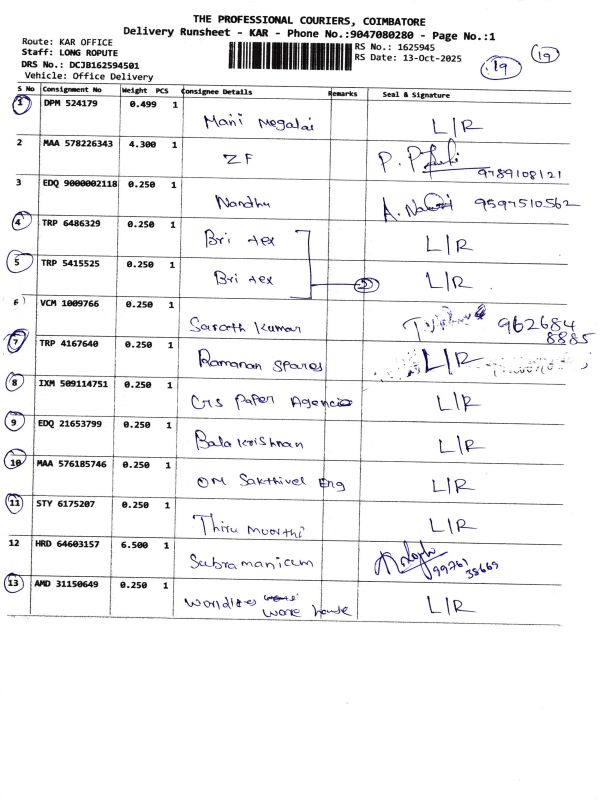 THE PROFESSIONAL COURIERS, COIMBATORE
Delivery Runsheet - KAR - Phone No.:9047080280 - Page No.:1
Route: KAR OFFICE
Staff: LONG ROPUTE
DRS No.: DCJB162594501
Vehicle: Office Delivery
RS No.: 1625945
RS Date: 13-Oct-2025
19 19
S No Consignment No Weight PCS Consignee Details Remarks Seal & Signature
1 DPM 524179 0.499 1 Mani Megalai L/R
2 MAA 578226343 4.300 1 ZF P. 9789108121
3 EDQ 9000002118 0.250 1 Nandhu A. 9597510562
4 TRP 6486329 0.250 1 Bri tex L/R
5 TRP 5415525 0.250 1 Bri tex L/R
6 VCM 1009766 0.250 1 Sarath Kumar 962684 8885
7 TRP 4167640 0.250 1 Ramanan Spares L/R
8 IXM 509114751 0.250 1 Paper Agencies L/R
9 EDQ 21653799 0.250 1 Balakrishnan L/R
10 MAA 576185746 0.250 1 OM Sakthivel Eng L/R
11 STY 6175207 0.250 1 Thiru Moorthi L/R
12 HRD 64603157 6.500 1 Subramanicum 99761 38669
13 AMD 31150649 0.250 1 ware house L/R